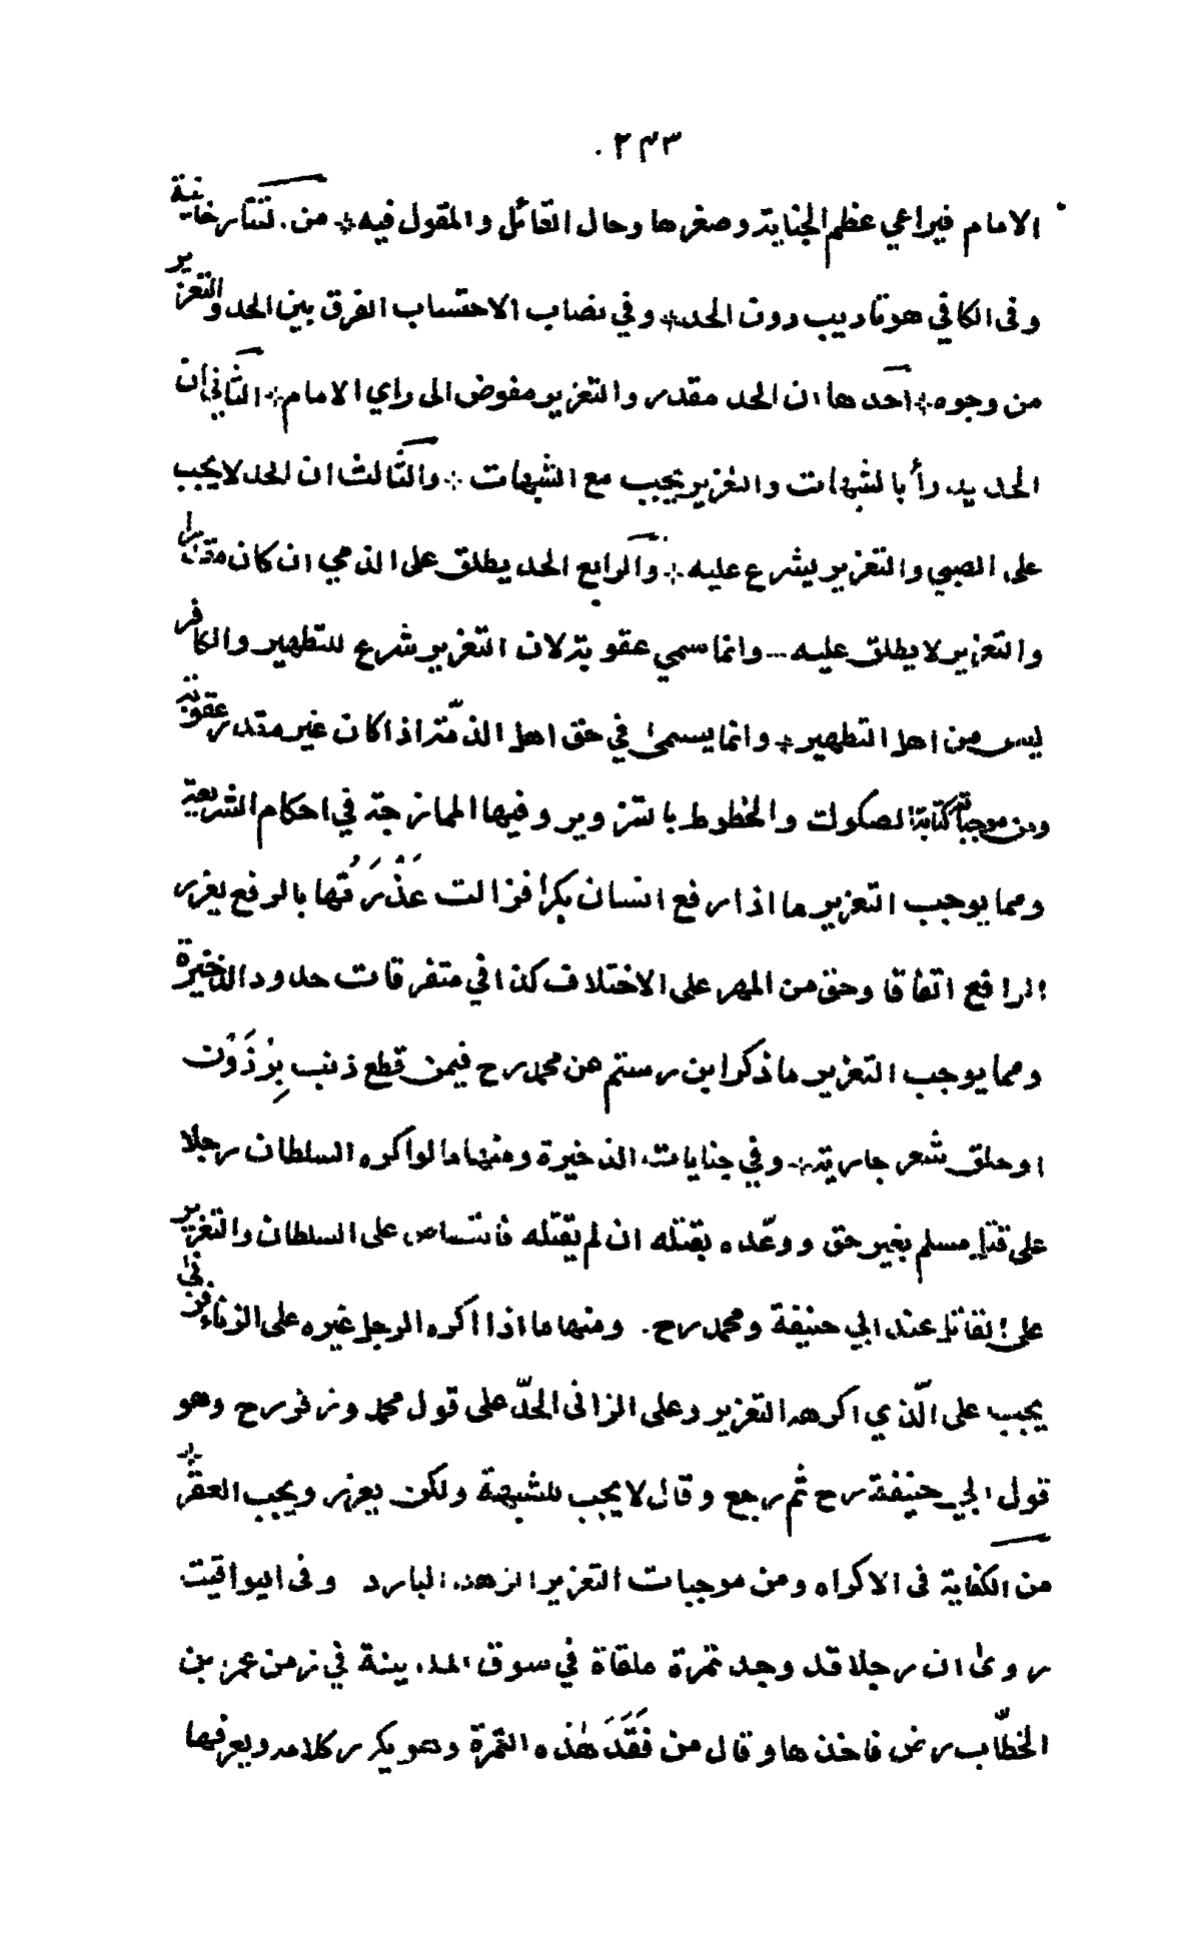 ٢٤٣
الامام فيراعي عظم الجناية وصغرها وحال القائل والمقول فيه * من. تتارخانية
وفى الكافي هو تاديب دون الحد * وفي نصاب الاحتساب الفرق بين الحد والتعزير
من وجوه * احدها ان الحد مقدر والتعزير مفوض الى راي الامام * الثاني ان
الحد يدرأ بالشبهات والتعزير يجب مع الشبهات * والثالث ان الحد لا يجب
على الصبي والتعزير يشرع عليه * والرابع الحد يطلق على الذمي ان كان مقدرا
والتعزير لا يطلق عليه ... وانما سمي عقوبة لان التعزير شرع للتطهير والكافر
ليس من اهل التطهير * وانما يسمىٰ في حق اهل الذمّة اذا كان غير مقدر عقوبة
ومن موجباته كتابة الصكوك والخطوط بالتزوير وفيها الممازجة في احكام الشريعة
ومما يوجب التعزير ما اذا رفع انسان بكرا فزالت عَذْرَتُها بالرفع يعزر
الرافع اتفاقا وحق من المهر على الاختلاف كذا في متفرقات حدود الذخيرة
ومما يوجب التعزير ما ذكر ابن رستم عن محمد رح فيمن قطع ذنب بِرْذَوْن
او حلق شعر جارية * وفي جنايات الذخيرة ومنها ما لو اكره السلطان رجلا
على قتل مسلم بغير حق ووعّده بقتله ان لم يقتله فالقصاص على السلطان والتعزير
على القاتل عند ابي حنيفة ومحمد رح. ومنها ما اذا اكره الرجل غيره على الزناء فزنىٰ
يجب على الّذي اكرهه التعزير وعلى الزانى الحدّ على قول محمد وزفر رح وهو
قول ابي حنيفة رح ثم رجع وقال لا يجب للشبهة ولكن يعزر ويجب العقر *
من الكفاية فى الاكراه ومن موجبات التعزير الزهد البارد وفى اليواقيت
روىٰ ان رجلا قد وجد تمرة ملقاة في سوق المدينة في زمن عمر بن
الخطّاب رض فاخذها وقال من فَقَدَ هٰذه التمرة وهو يكرر كلامه ويعرفها